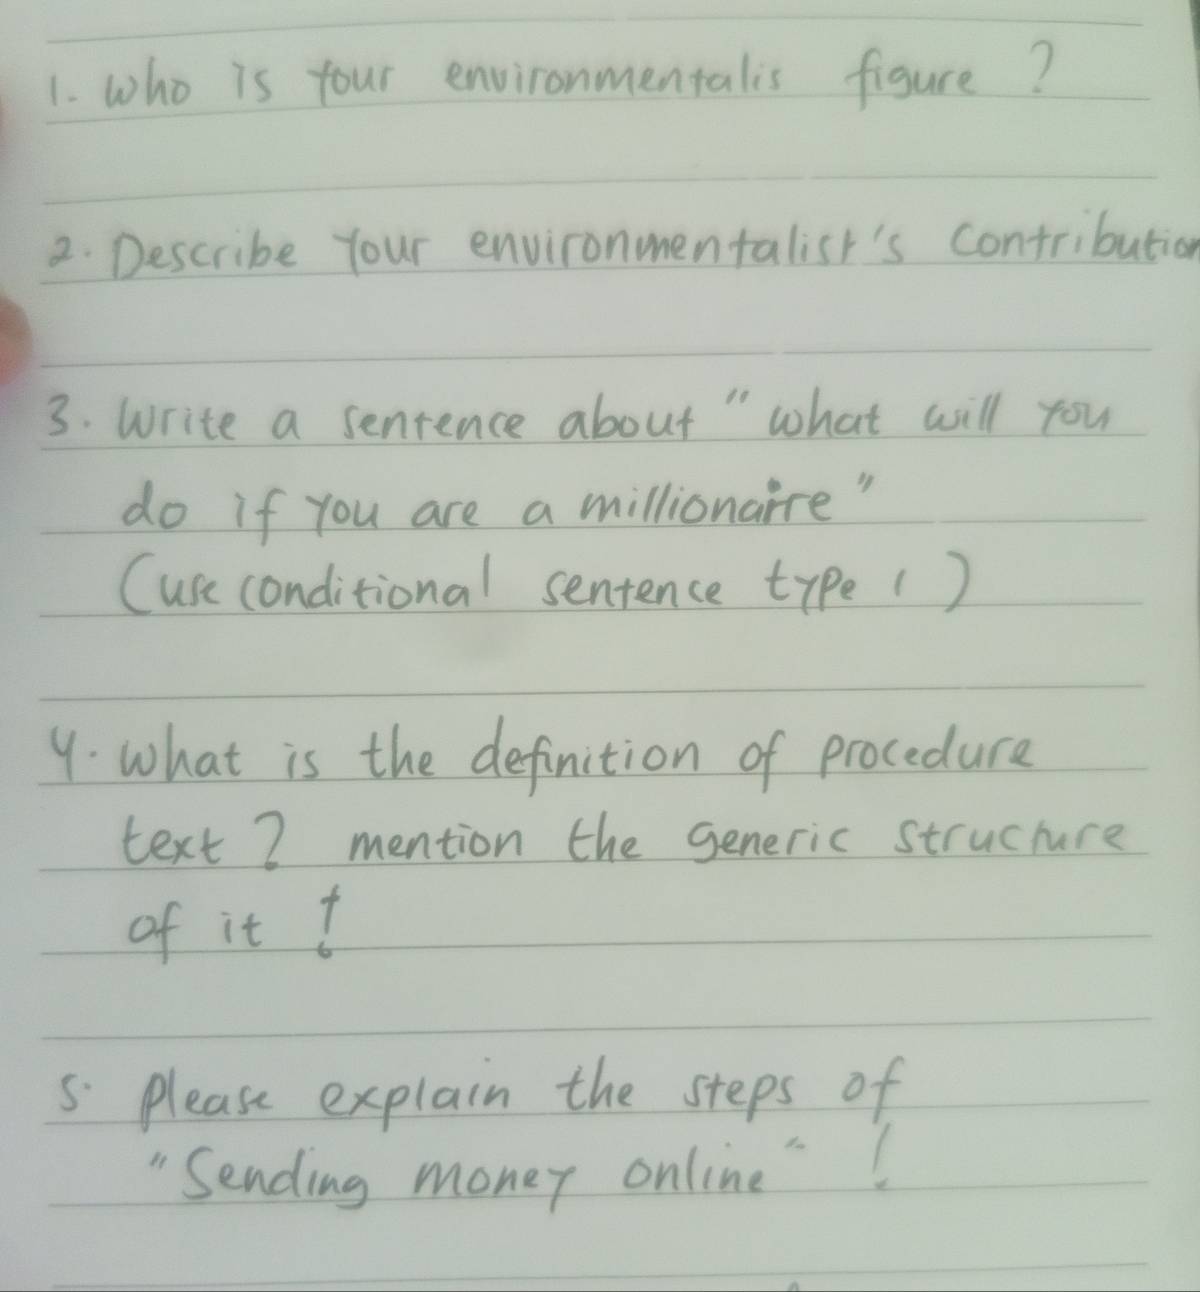 1. Who is your environmentalis figure ?
2. Describe your environmentalist's contribution
3. Write a sentence about "what will you
do if you are a millionaire"
(use conditional sentence type 1)
4. What is the definition of procedure
text ? mention the generic structure
of it !
5. Please explain the steps of
"Sending money online" !